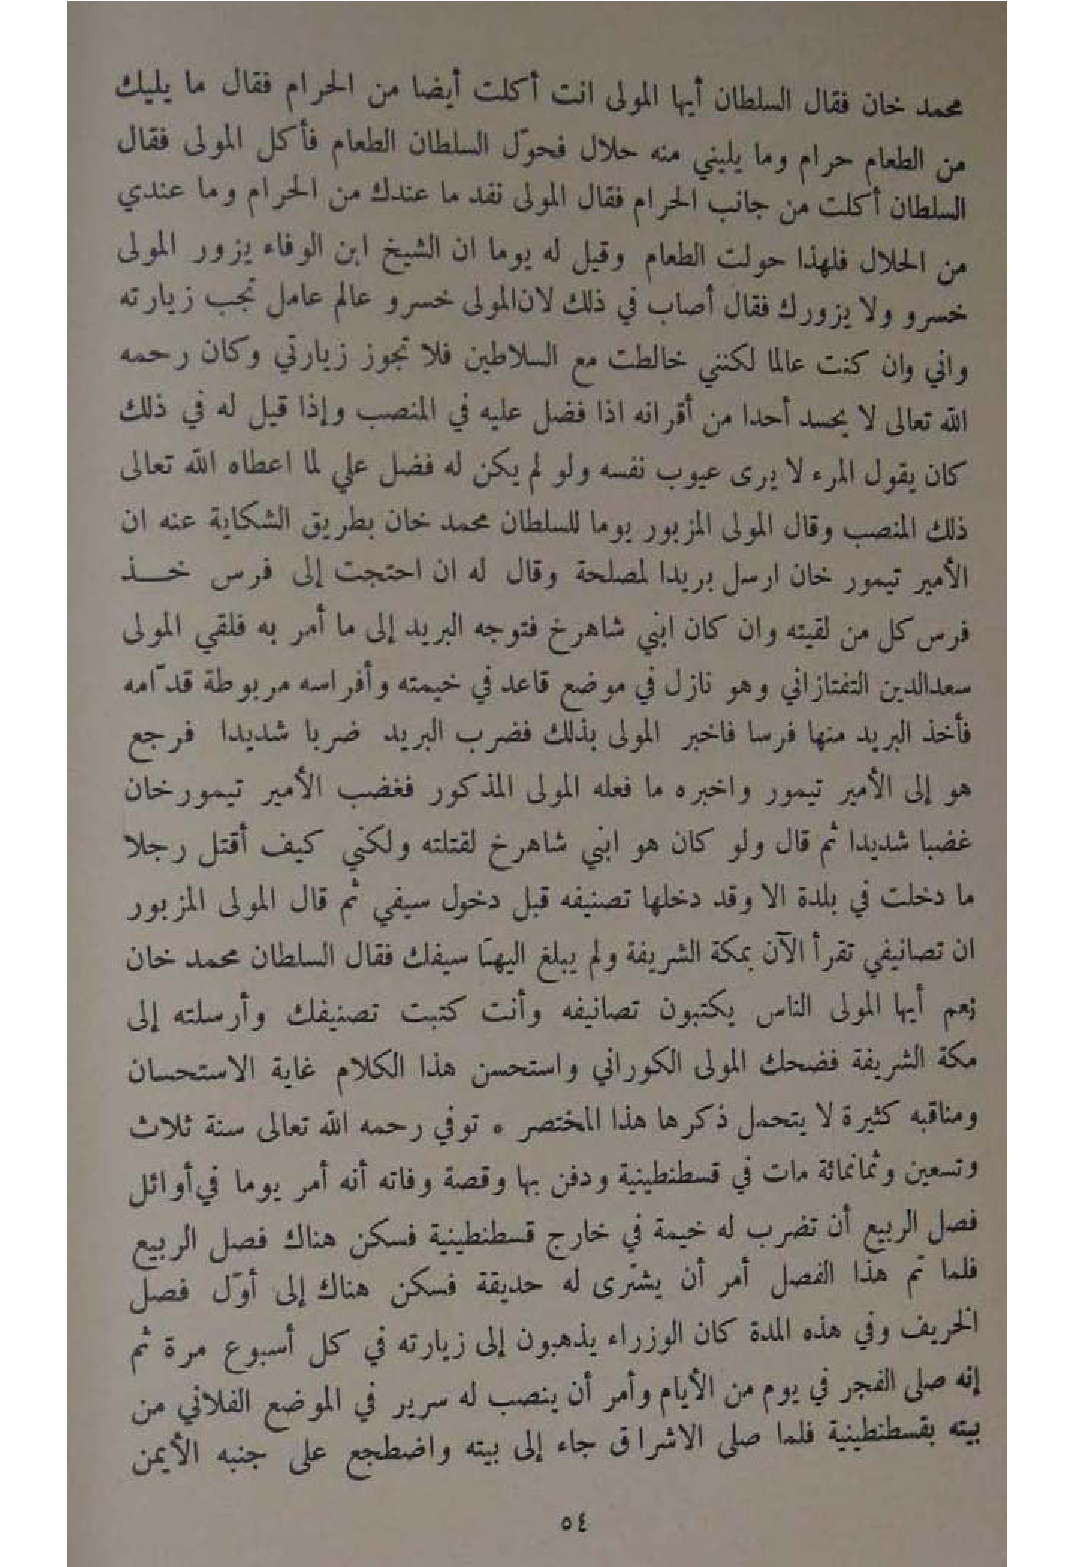 محمد خان فقال السلطان أيها المولى انت أكلت أيضا من الحرام فقال ما يليك
من الطعام حرام وما يليني منه حلال فحوّل السلطان الطعام فأكل المولى فقال
السلطان أكلت من جانب الحرام فقال المولى نفد ما عندك من الحرام وما عندي
من الحلال فلهذا حولت الطعام وقيل له يوما ان الشيخ ابن الوفاء يزور المولى
خسرو ولا يزورك فقال أصاب في ذلك لان المولى خسرو عالم عامل تجب زيارته
واني وان كنت عالما لكنني خالطت مع السلاطين فلا تجوز زيارتي وكان رحمه
الله تعالى لا يحسد أحدا من أقرانه اذا فضل عليه في المنصب وإذا قيل له في ذلك
كان يقول المرء لا يرى عيوب نفسه ولو لم يكن له فضل علي لما اعطاه الله تعالى
ذلك المنصب وقال المولى المزبور يوما للسلطان محمد خان بطريق الشكاية عنه ان
الأمير تيمور خان ارسل بريدا لمصلحة وقال له ان احتجت إلى فرس خذ
فرس كل من لقيته وان كان ابني شاهرخ فتوجه البريد إلى ما أمر به فلقي المولى
سعدالدين التفتازاني وهو نازل في موضع قاعد في خيمته وأفراسه مربوطة قدّامه
فأخذ البريد منها فرسا فاخبر المولى بذلك فضرب البريد ضربا شديدا فرجع
هو إلى الأمير تيمور واخبره ما فعله المولى المذكور فغضب الأمير تيمورخان
غضبا شديدا ثم قال ولو كان هو ابني شاهرخ لقتلته ولكني كيف أقتل رجلا
ما دخلت في بلدة الا وقد دخلها تصنيفه قبل دخول سيفي ثم قال المولى المزبور
ان تصانيفي تقرأ الآن بمكة الشريفة ولم يبلغ اليها سيفك فقال السلطان محمد خان
نعم أيها المولى الناس يكتبون تصانيفه وأنت كتبت تصنيفك وأرسلته إلى
مكة الشريفة فضحك المولى الكوراني واستحسن هذا الكلام غاية الاستحسان
ومناقبه كثيرة لا يتحمل ذكرها هذا المختصر * توفي رحمه الله تعالى سنة ثلاث
وتسعين وثمانمائة مات في قسطنطينية ودفن بها وقصة وفاته أنه أمر يوما في أوائل
فصل الربيع أن تضرب له خيمة في خارج قسطنطينية فسكن هناك فصل الربيع
فلما تم هذا الفصل أمر أن يشترى له حديقة فسكن هناك إلى أوّل فصل
الخريف وفي هذه المدة كان الوزراء يذهبون إلى زيارته في كل أسبوع مرة ثم
إنه صلى الفجر في يوم من الأيام وأمر أن ينصب له سرير في الموضع الفلاني من
بيته بقسطنطينية فلما صلى الاشراق جاء إلى بيته واضطجع على جنبه الأيمن
٥٤